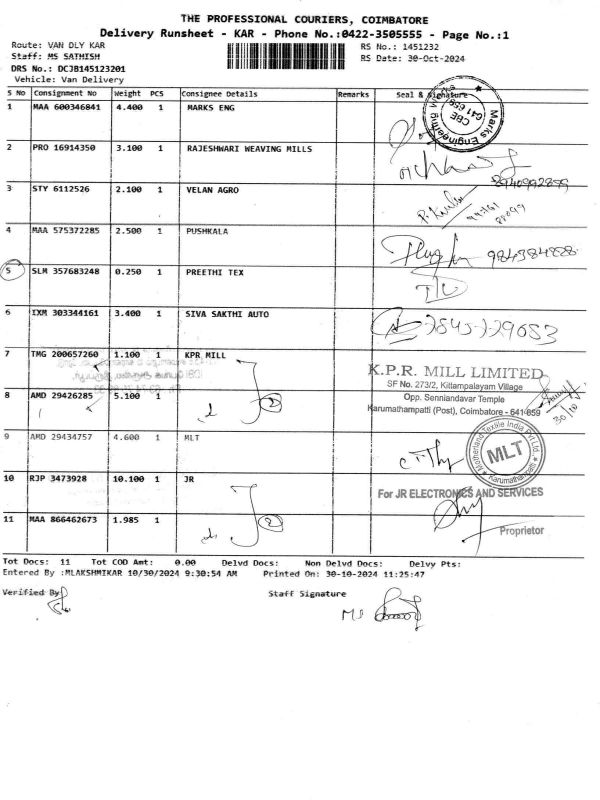 THE PROFESSIONAL COURIERS, COIMBATORE
Delivery Runsheet - KAR - Phone No.:0422-3505555 - Page No.:1
Route: VAN DLY KAR
RS No.: 1451232
Staff: MS SATHISH
RS Date: 30-Oct-2024
DRS No.: DCJB145123201
Vehicle: Van Delivery
S No Consignment No Weight PCS Consignee Details Remarks Seal & Signature
1 MAA 600346841 4.400 1 MARKS ENG
Marks Engineering Works
CBE
641 659
2 PRO 16914350 3.100 1 RAJESHWARI WEAVING MILLS
8940992899
3 STY 6112526 2.100 1 VELAN AGRO
4 MAA 575372285 2.500 1 PUSHKALA
5 SLM 357683248 0.250 1 PREETHI TEX
6 IXM 303344161 3.400 1 SIVA SAKTHI AUTO
7 TMG 200657260 1.100 1 KPR MILL
K.P.R. MILL LIMITED
SF No. 273/2, Kittampalayam Village
Opp. Senniandavar Temple
Karumathampatti (Post), Coimbatore - 641 659
30/10
8 AMD 29426285 5.100 1
9 AMD 29434757 4.600 1 MLT
Motherland Textile India Pvt Ltd.
MLT
Karumathampatti
10 RJP 3473928 10.100 1 JR
For JR ELECTRONICS AND SERVICES
Proprietor
11 MAA 866462673 1.985 1
Tot Docs: 11 Tot COD Amt: 0.00 Delvd Docs: Non Delvd Docs: Delvy Pts:
Entered By :MLAKSHMIKAR 10/30/2024 9:30:54 AM Printed On: 30-10-2024 11:25:47
Verified By
Staff Signature